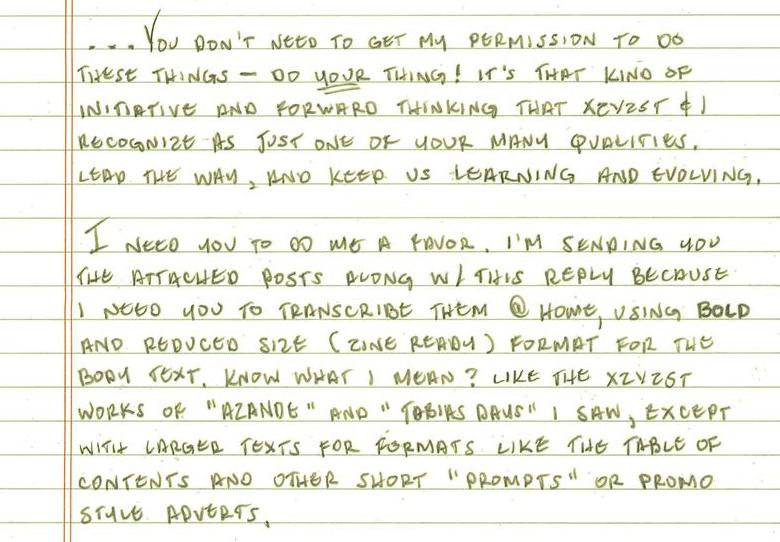 ... YOU DON'T NEED TO GET MY PERMISSION TO DO
THESE THINGS – DO YOUR THING! IT'S THAT KIND OF
INITIATIVE AND FORWARD THINKING THAT XZYZST & I
RECOGNIZE AS JUST ONE OF YOUR MANY QUALITIES.
LEAD THE WAY, AND KEEP US LEARNING AND EVOLVING.
I NEED YOU TO DO ME A FAVOR. I'M SENDING YOU
THE ATTACHED POSTS ALONG W/ THIS REPLY BECAUSE
I NEED YOU TO TRANSCRIBE THEM @ HOME, USING BOLD
AND REDUCED SIZE (ZINE READY) FORMAT FOR THE
BODY TEXT. KNOW WHAT I MEAN? LIKE THE XZYZST
WORKS OF "AZANDE" AND "TOBIAS DAYS" I SAW, EXCEPT
WITH LARGER TEXTS FOR FORMATS LIKE THE TABLE OF
CONTENTS AND OTHER SHORT "PROMPTS" OR PROMO
STYLE ADVERTS.